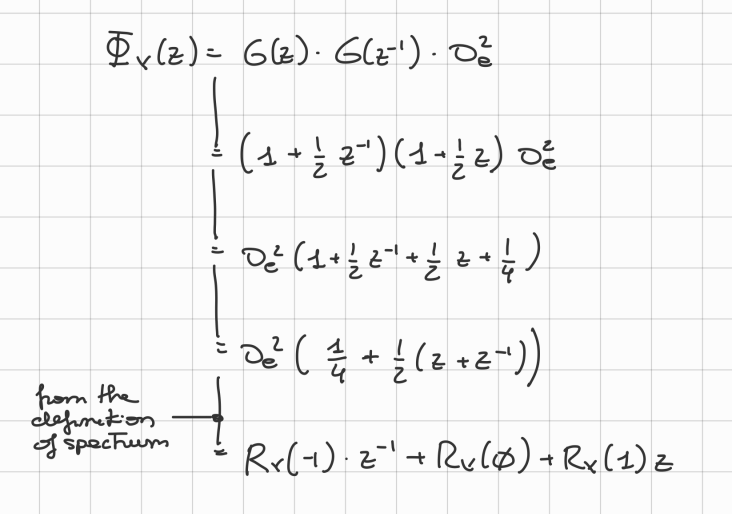 Φᵥ(z) = G(z) · G(z⁻¹) · σₑ²
= (1 + 1/2 z⁻¹)(1 + 1/2 z) σₑ²
= σₑ² (1 + 1/2 z⁻¹ + 1/2 z + 1/4)
= σₑ² (1/4 + 1/2 (z + z⁻¹))
from the
definition
of spectrum
= Rᵥ(-1) · z⁻¹ + Rᵥ(∅) + Rᵥ(1) z